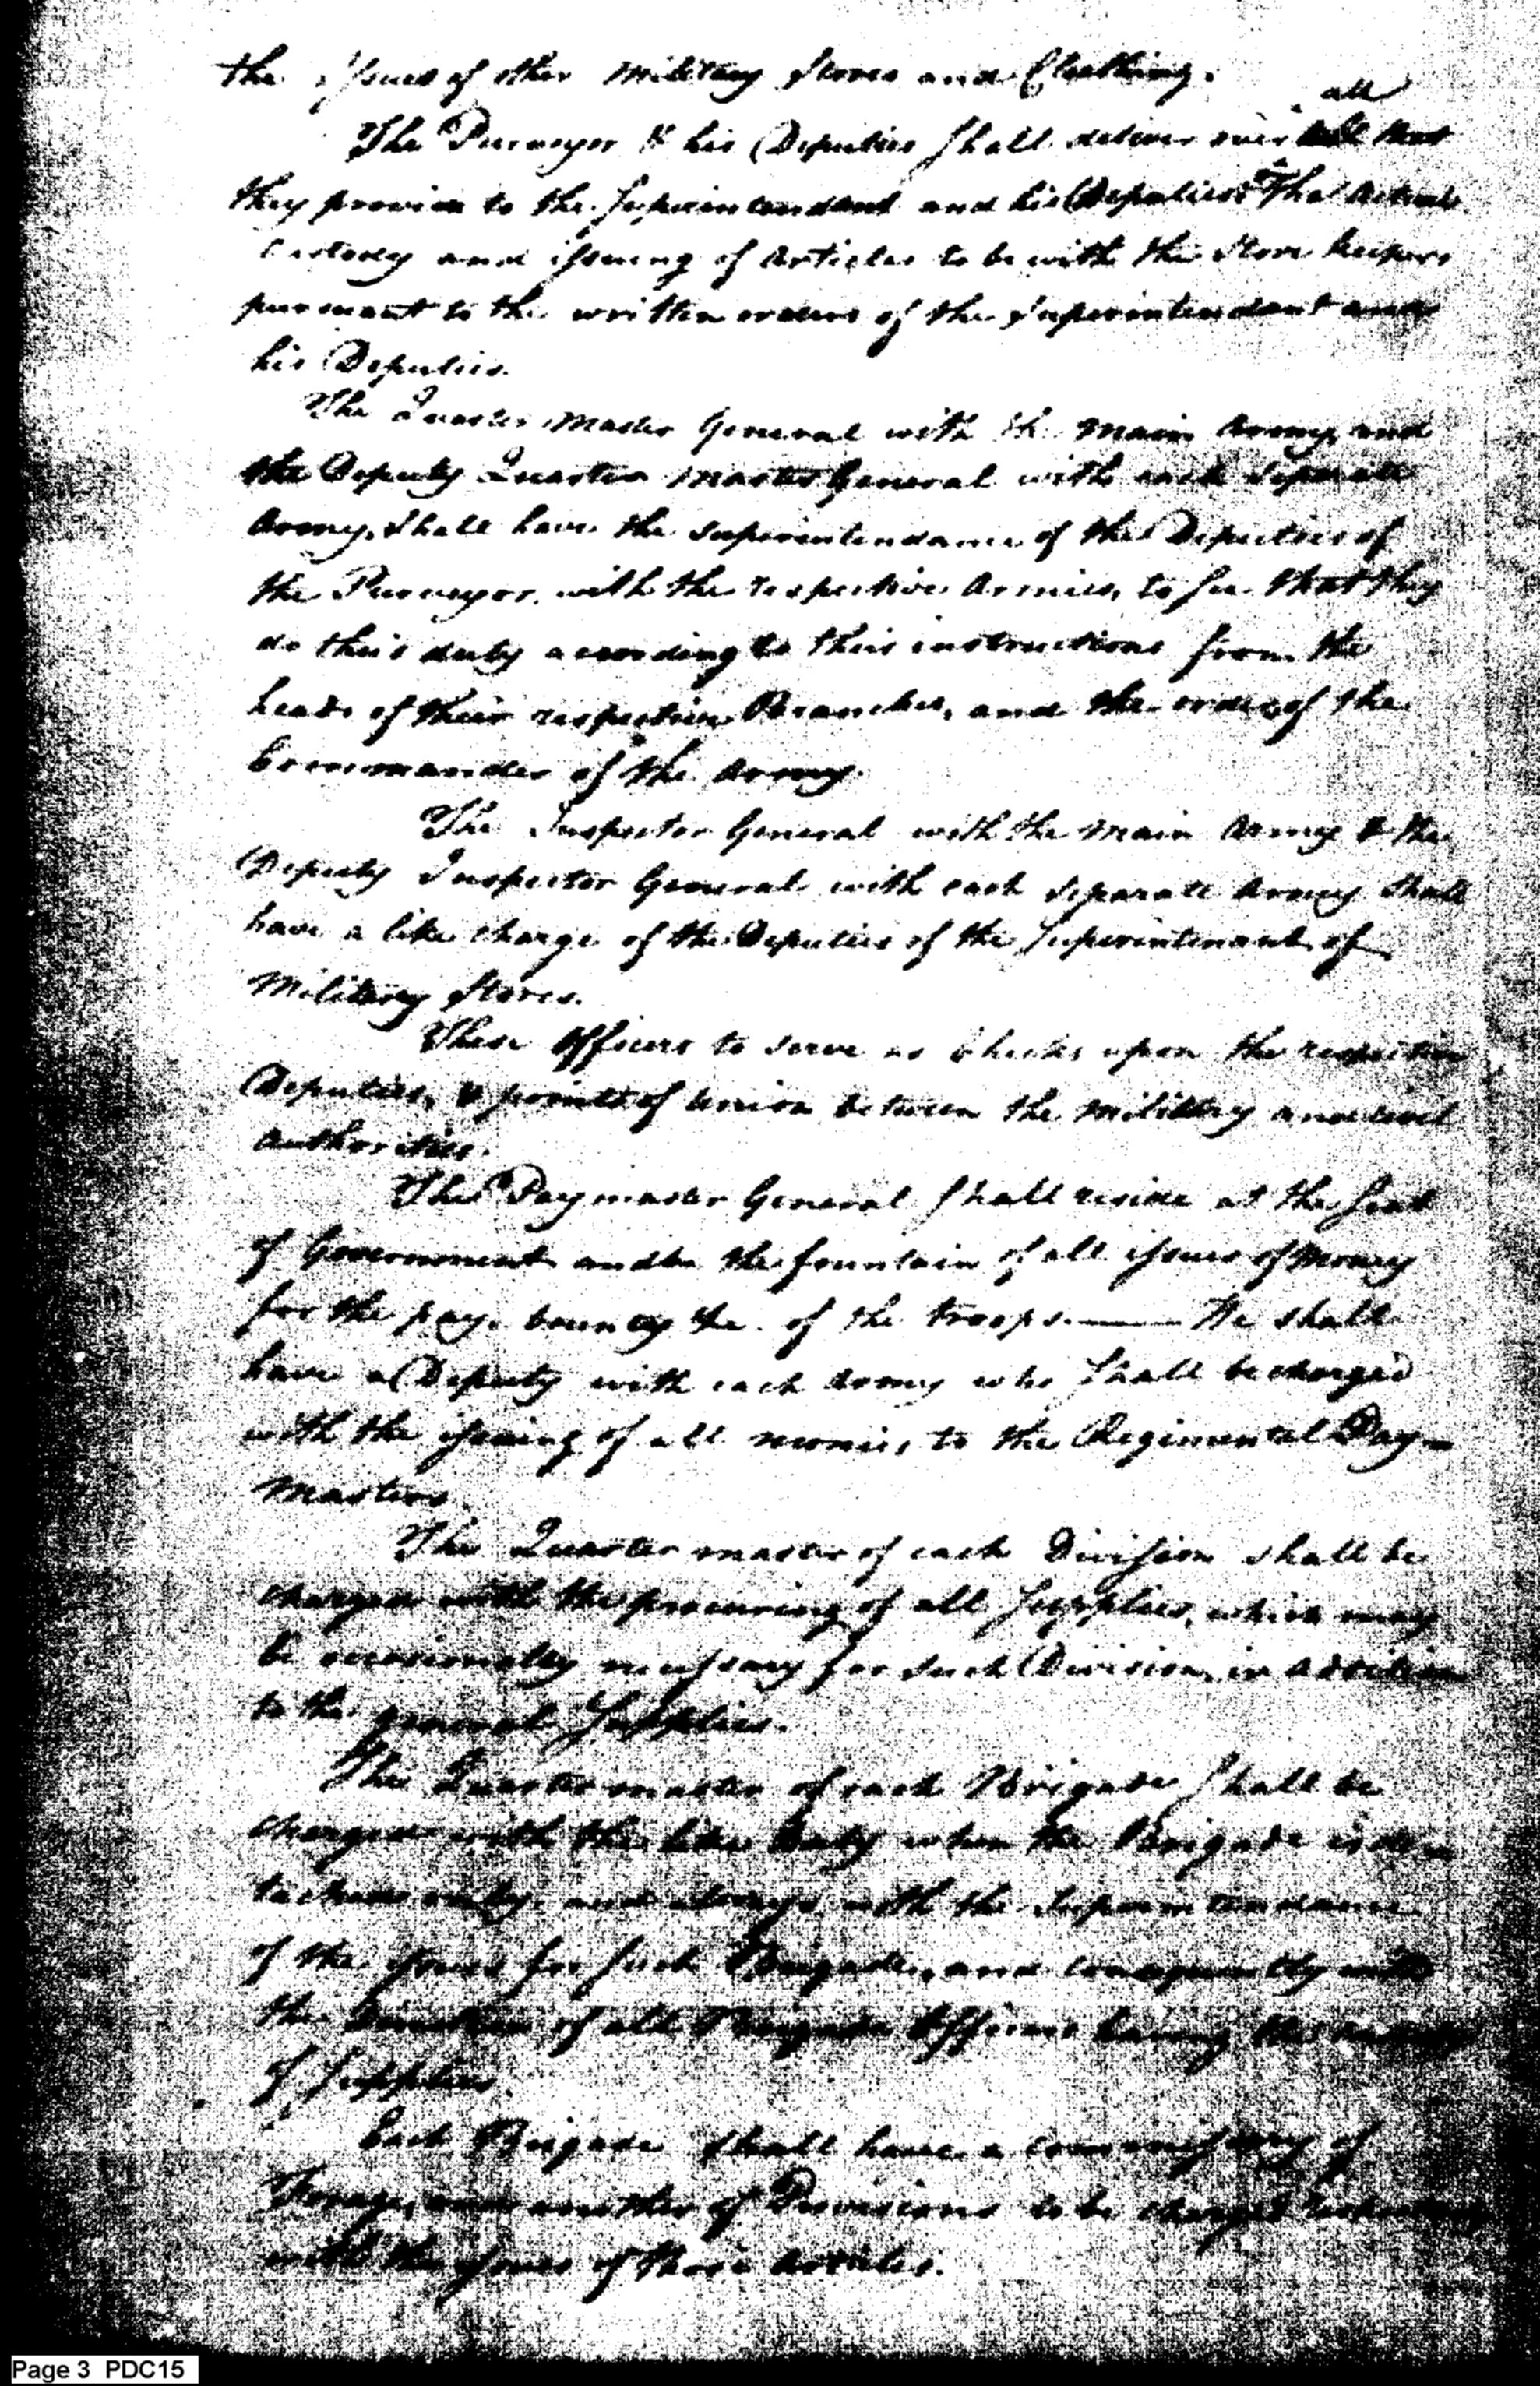 the issues of other Military Stores and Clothing.
all
The Purveyor & his Deputies shall deliver over that
they provide to the Superintendant and his Deputies The actual
Custody and issuing of Articles to be with the Store keepers
pursuant to the written orders of the Superintendant and
his Deputies.
The Quarter Master General with the main Army, and
the Deputy Quarter Master General with each separate
Army, shall have the superintendance of the Deputies of
the Purveyor, with the respective Armies, to see that they
do their duty according to their instructions from the
heads of their respective Branches, and the orders of the
Commander of the Army.
The Inspector General with the main Army & the
Deputy Inspector General with each separate Army shall
have a like charge of the Deputies of the Superintenant of
Military Stores.
These Officers to serve as Checks upon the respective
Deputies, & points of union between the military and civil
authorities.
The Paymaster General shall reside at the seat
of Government and be the fountain of all issues of Money
for the pay, bounty &c. of the troops.—— He shall
have a Deputy with each Army who shall be charged
with the issuing of all monies to the Regimental Pay-
Masters.
The Quarter master of each Division shall be
charged with the procuring of all supplies, which may
be occasionally necessary for such Division, in addition
to the general Supplies.
The Quarter master of each Brigade shall be
charged with the like Duty when the Brigade is de-
tached only, and always with the Superintendance
of the issues for such Brigade, and consequently with
the direction of all Brigade Officers having the charge
of Supplies.
Each Brigade shall have a commissary of
Forage, and another of Provisions to be charged
with the issues of those articles.
Page 3 PDC15